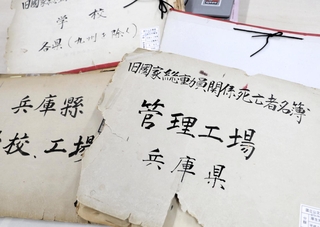 学校
各県(九州を除く)
兵庫縣
校、工場
旧國家総動員関係死亡者名簿
管理工場
兵庫県